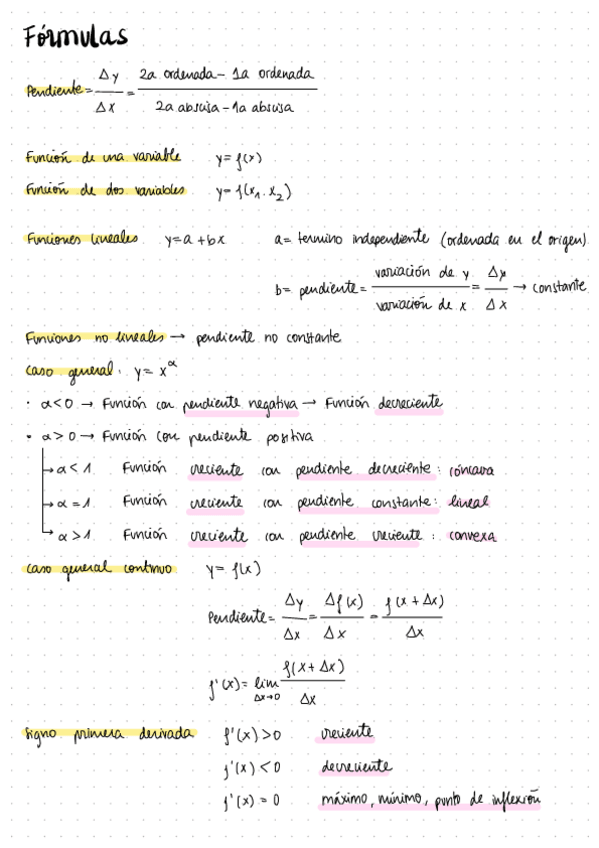 Fórmulas
Pendiente = Δy/Δx = 2a ordenada - 1a ordenada / 2a absisa - 1a absisa
Función de una variable y = f(x)
Función de dos variables y = f(x₁.x₂)
Funciones lineales y = a + bx a = termino independiente (ordenada en el origen)
b = pendiente = variación de y / variación de x = Δy/Δx → constante
Funciones no lineales → pendiente no constante
Caso general. y = x^α
· α < 0 → Función con pendiente negativa → Función decreciente
· α > 0 → Función con pendiente positiva
→ α < 1 Función creciente con pendiente decreciente: cóncava
→ α = 1 Función creciente con pendiente constante: lineal
→ α > 1 Función creciente con pendiente creciente: convexa
Caso general continuo y = f(x)
Pendiente = Δy/Δx = Δf(x)/Δx = f(x + Δx)/Δx
f'(x) = lim Δx→0 f(x + Δx)/Δx
Signo primera derivada f'(x) > 0 creciente
f'(x) < 0 decreciente
f'(x) = 0 máximo, mínimo, punto de inflexión